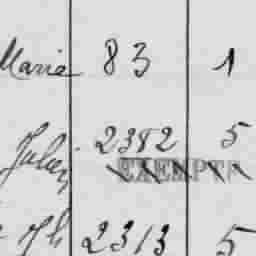 Marie 83 1
Julien 2382 5
EXEMPT
2313 5